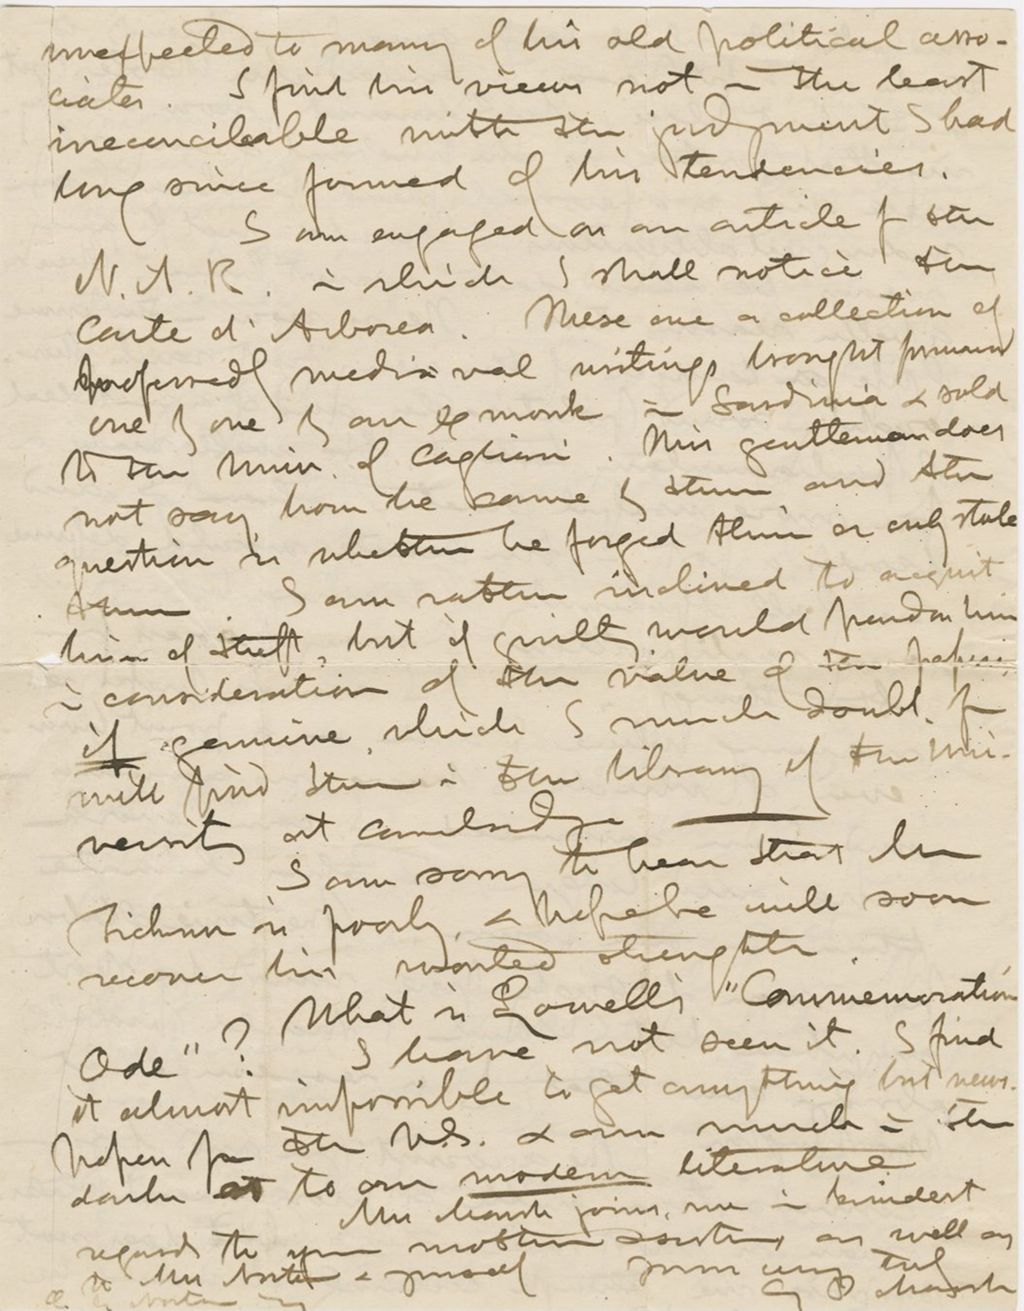 unexpected to many of his old political asso-
ciates. I find his views not in the least
irreconcileable with the judgment I had
long since formed of his tendencies.
I am engaged on an article for the
N. A. R. in which I shall notice the
Carte d' Arborea. These are a collection of
professedly mediæval writings brought forward
one by one by an ex monk in Sardinia & sold
to the Univ. of Cagliari. This gentleman does
not say how he came by them and the
question is whether he forged them or only stole
them. I am rather inclined to acquit
him of theft, but if guilty would pardon him
in consideration of the value of the papers
if genuine, which I much doubt. You
will find them in the library of the Uni-
versity at Cambridge
I am sorry to hear that Mr
Ticknor is poorly, & hope he will soon
recover his wonted strength.
What is Lowell's "Commemoration
Ode"? I have not seen it. I find
it almost impossible to get anything but news-
papers from the U.S. & am much in the
dark as to our modern literature
Mrs Marsh joins me in kindest
regards to your mother & sisters, as well as
to Mrs Norton & yourself yours very truly
C. E. Norton Esq G P Marsh